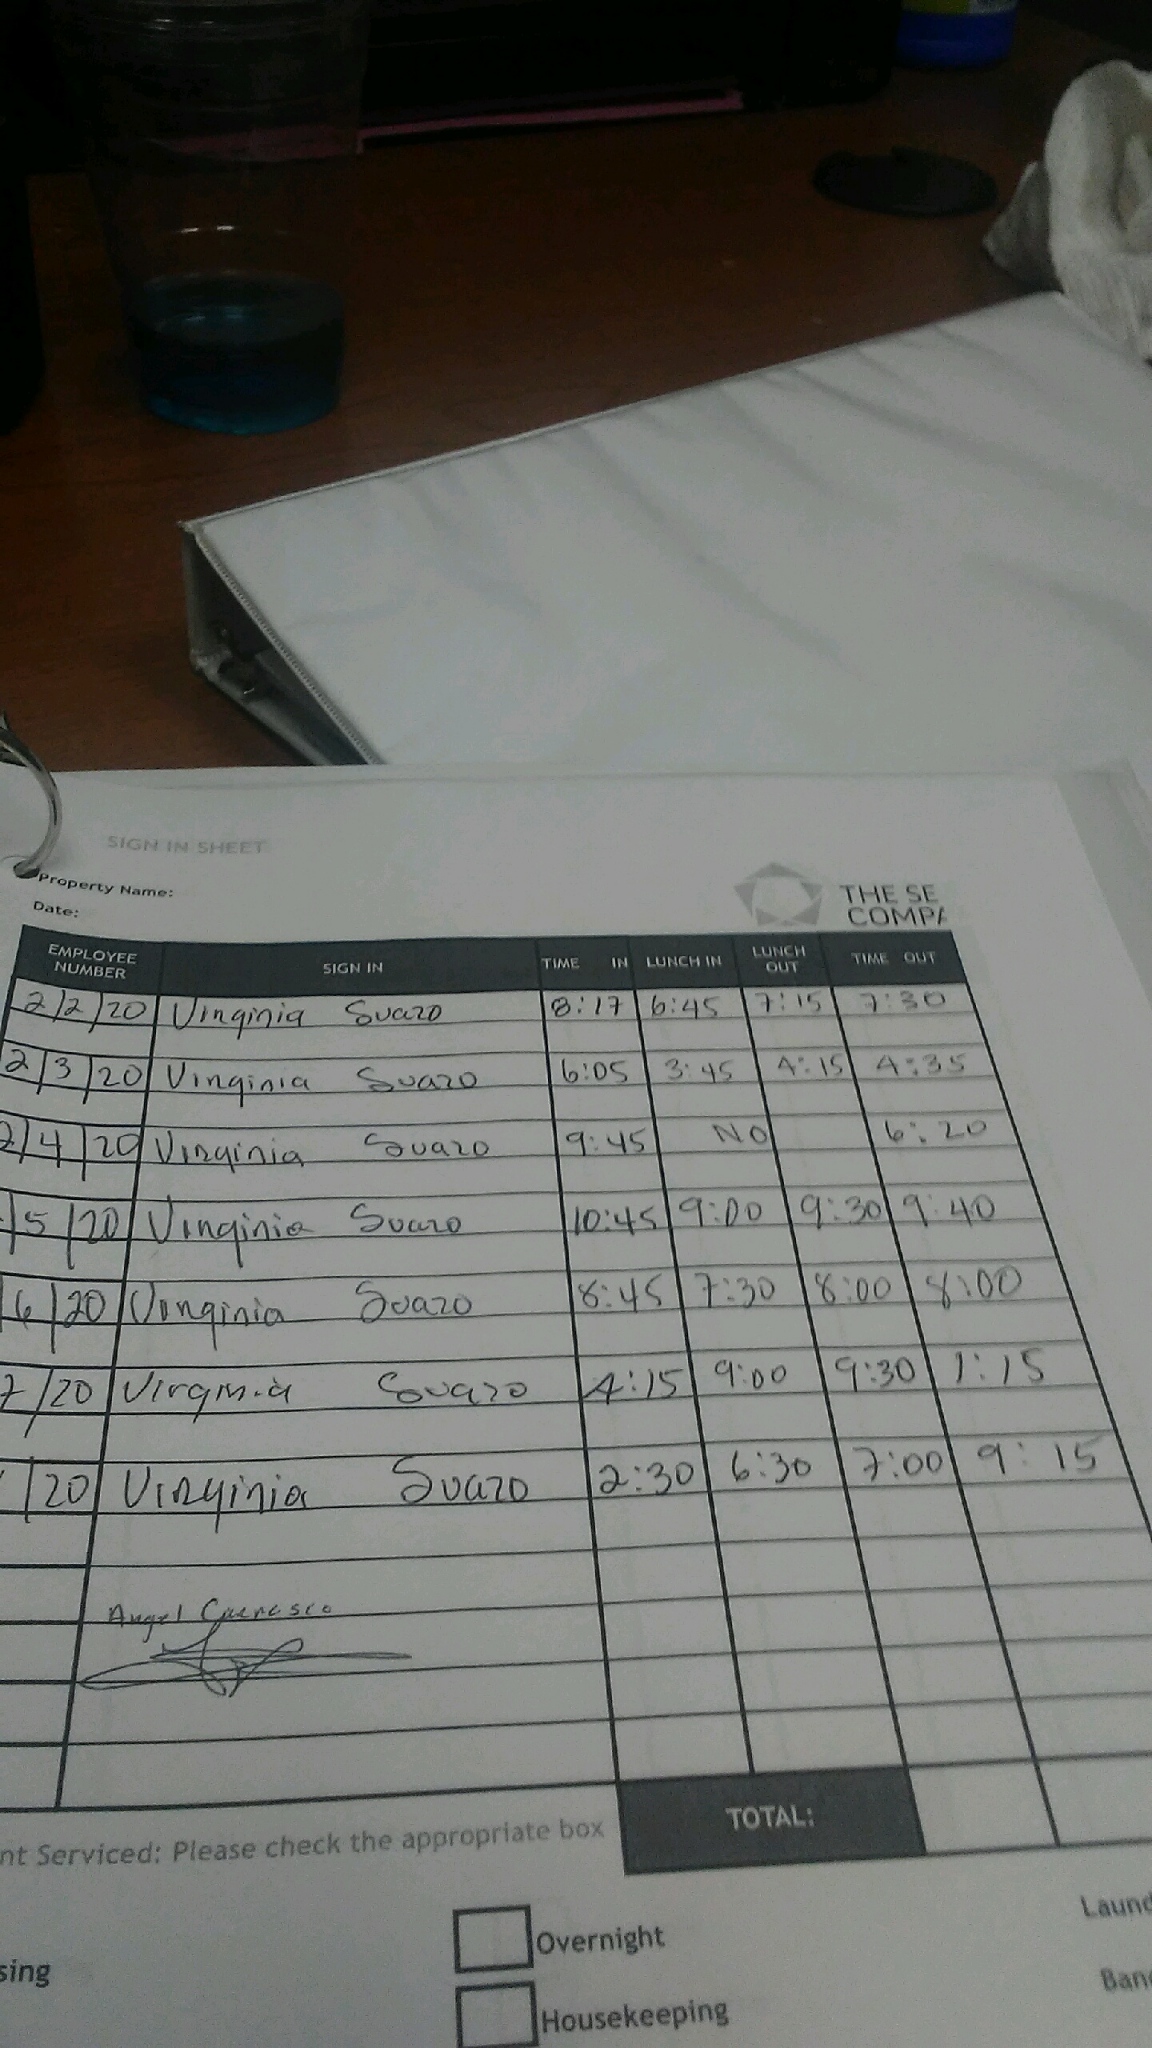 SIGN IN SHEET
Property Name:
THE SE
Date:
COMPA
EMPLOYEE NUMBER SIGN IN TIME IN LUNCH IN LUNCH OUT TIME OUT
2/2/20 Virginia Suazo 8:17 6:45 7:15 7:30
2/3/20 Virginia Suazo 6:05 3:45 4:15 4:35
2/4/20 Virginia Suazo 9:45 NO 6:20
/5/20 Virginia Suazo 10:45 9:00 9:30 9:40
6/20 Virginia Suazo 8:45 7:30 8:00 8:00
7/20 Virginia Suazo 4:15 9:00 9:30 1:15
/20 Virginia Suazo 2:30 6:30 7:00 9:15
Angel
TOTAL:
nt Serviced: Please check the appropriate box
Overnight
Laund
sing
Housekeeping
Banq